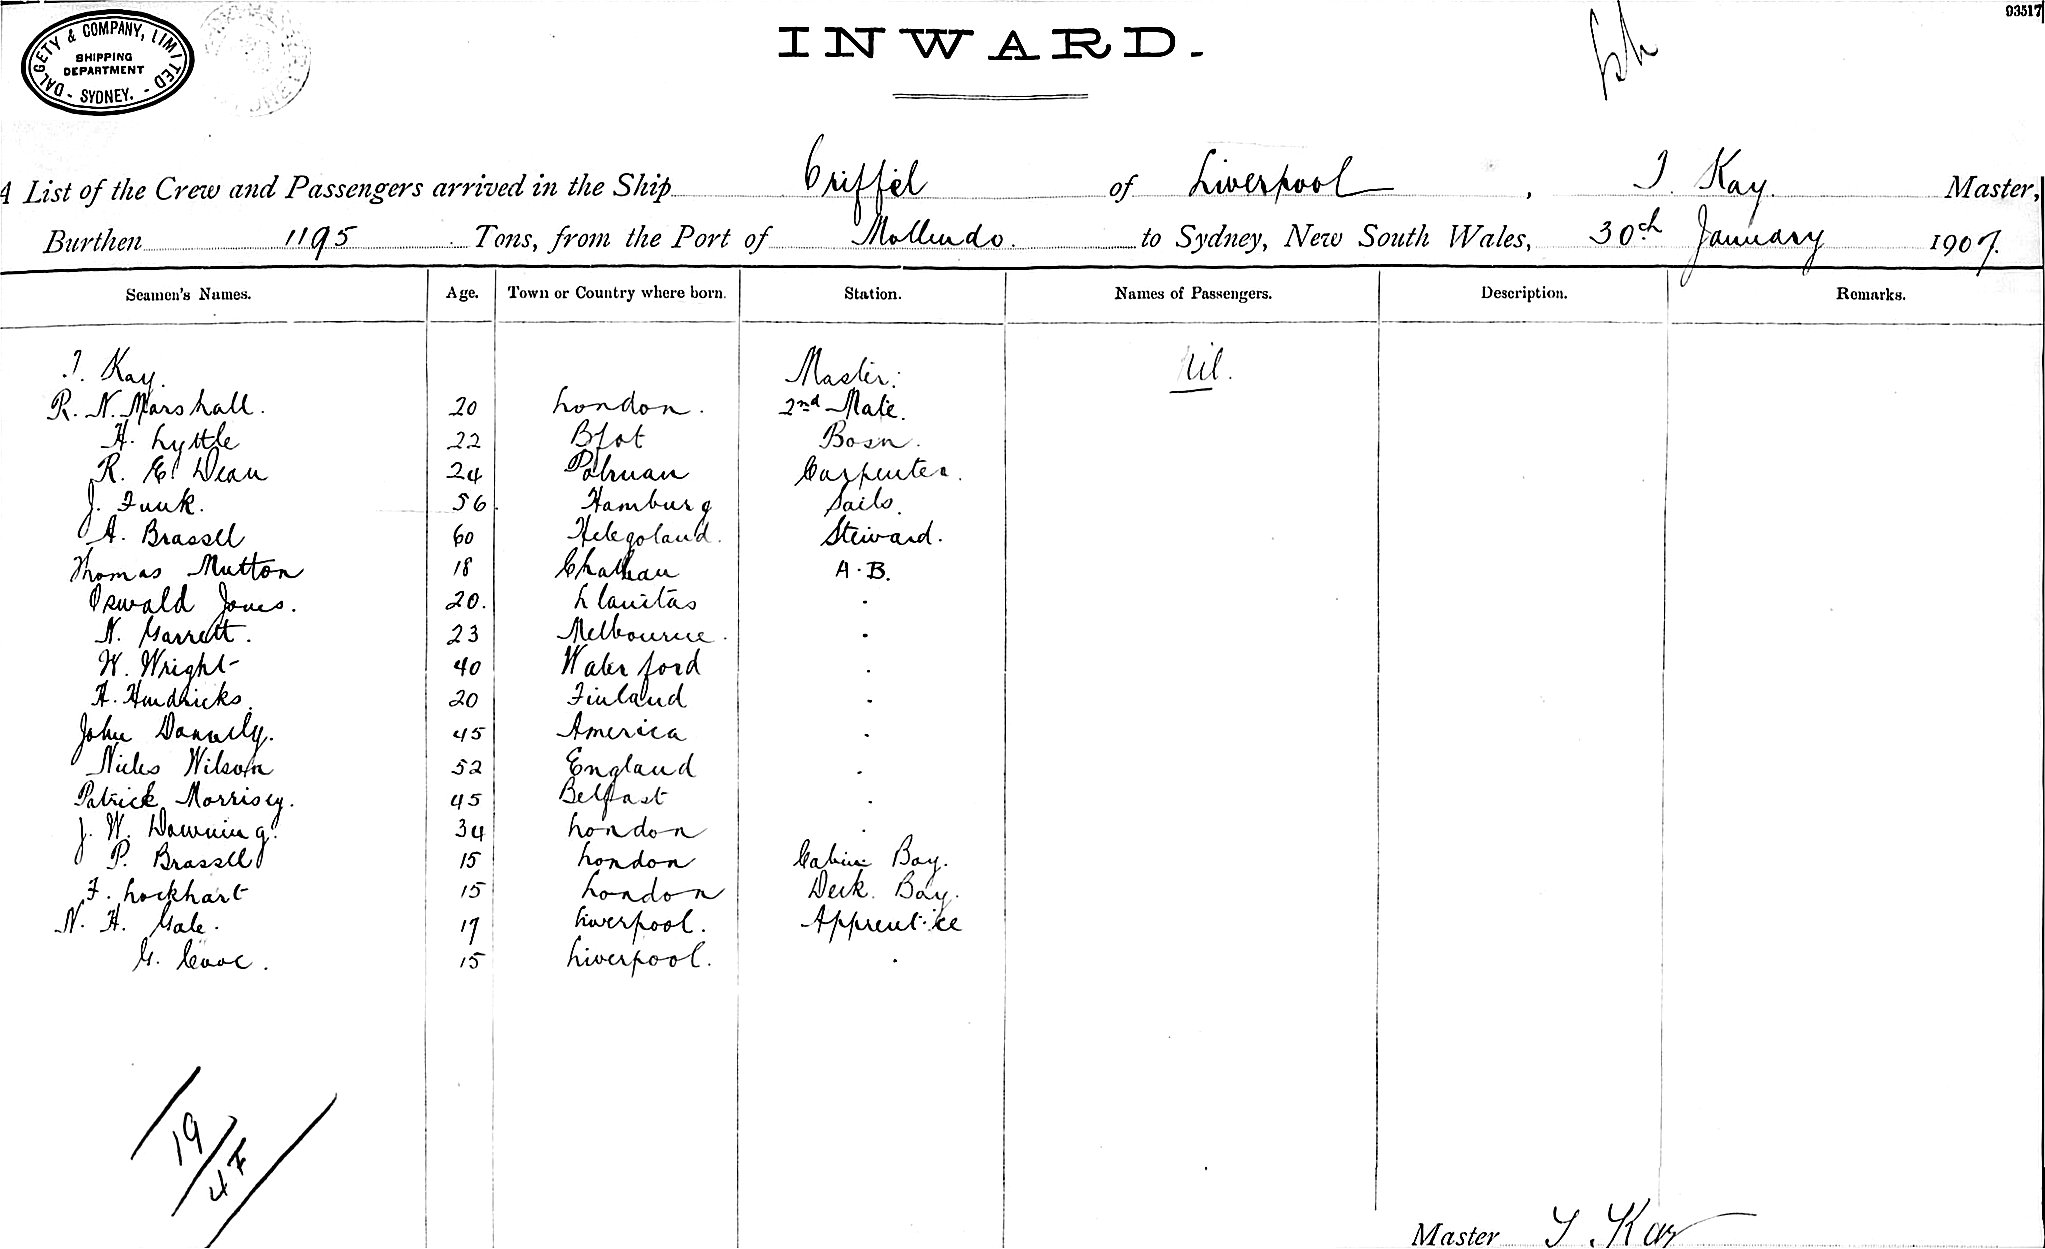 DALGETY & COMPANY, LIMITED
SHIPPING
DEPARTMENT
- SYDNEY. -
93517
INWARD.
A List of the Crew and Passengers arrived in the Ship Criffel of Liverpool, T. Kay. Master,
Burthen 1195 Tons, from the Port of Mollendo. to Sydney, New South Wales, 30th January 1907.
Seamen's Names. Age. Town or Country where born. Station. Names of Passengers. Description. Remarks.
T. Kay. Master. Nil.
R. N. Marshall. 20 London. 2nd Mate.
H. Lyttle 22 Bfst Bosn.
R. E. Dean 24 Polruan Carpenter.
J. Funk. 56 Hamburg Sails.
A. Brassell 60 Helegoland. Steward.
Thomas Mutton 18 A.B.
Oswald Jones. 20. Llanitas .
N. Garrett. 23 Melbourne. .
W. Wright 40 Waterford .
H. Hendricks. 20 Finland .
John Donnely. 45 America .
Wilson 52 England .
Patrick Morrisey. 45 Belfast .
J. W. Downing. 34 London .
P. Brassell 15 London Cabin Boy.
F. Lockhart 15 London Deck Boy.
N. H. Gale. 17 Liverpool. Apprentice
G. 15 Liverpool. .
19
4F
Master T. Kay